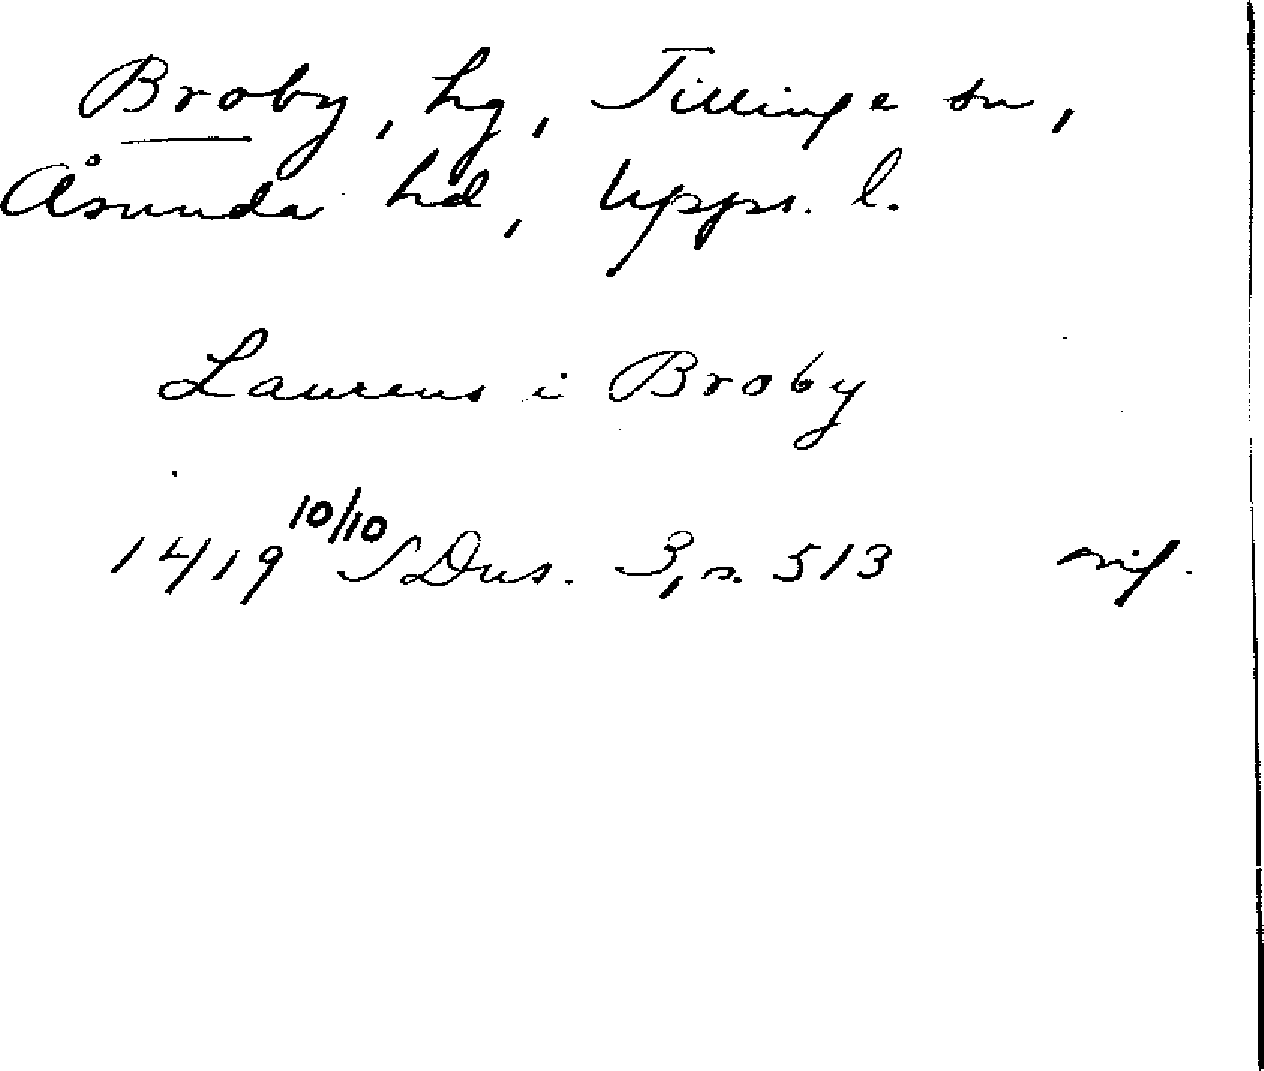 Broby, hg, Tillinge sn,
Åsunda hd, Upps. l.
Laurens i Broby
1419 10/10 SDns. 3, s. 513 nif.